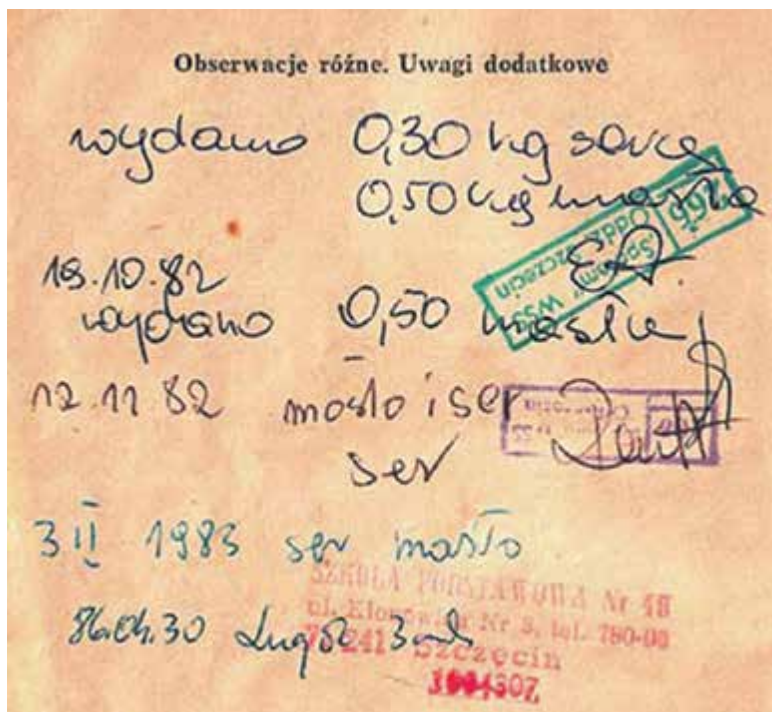 Obserwacje różne. Uwagi dodatkowe
wydano 0,30 kg sera
0,50 kg masła
266
"Społem" WSS
Oddz. Szczecin
19.10.82
wydano 0,50 masła
12.11.82 masło i ser
ser
3 II 1983 ser masło
SZKOŁA PODSTAWOWA Nr 48
ul. Nr 8, tel. 780-00
241 Szczecin
86.04.30